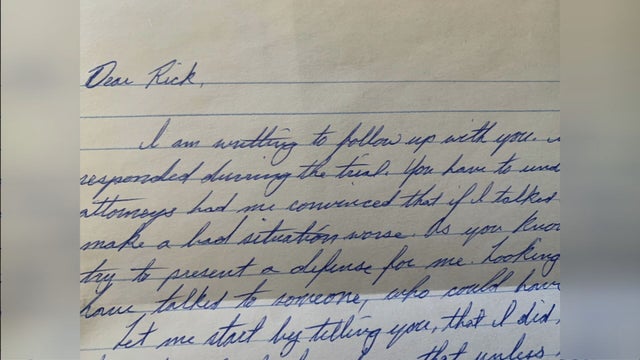 Dear Rick,
I am writting to follow up with you.
responded durring the trial. You have to und
attorneys had me convinced that if I talked
make a bad situation worse. As you know
try to present a defense for me. Looking
have talked to someone, who could have
Let me start by telling you, that I did,
that unless